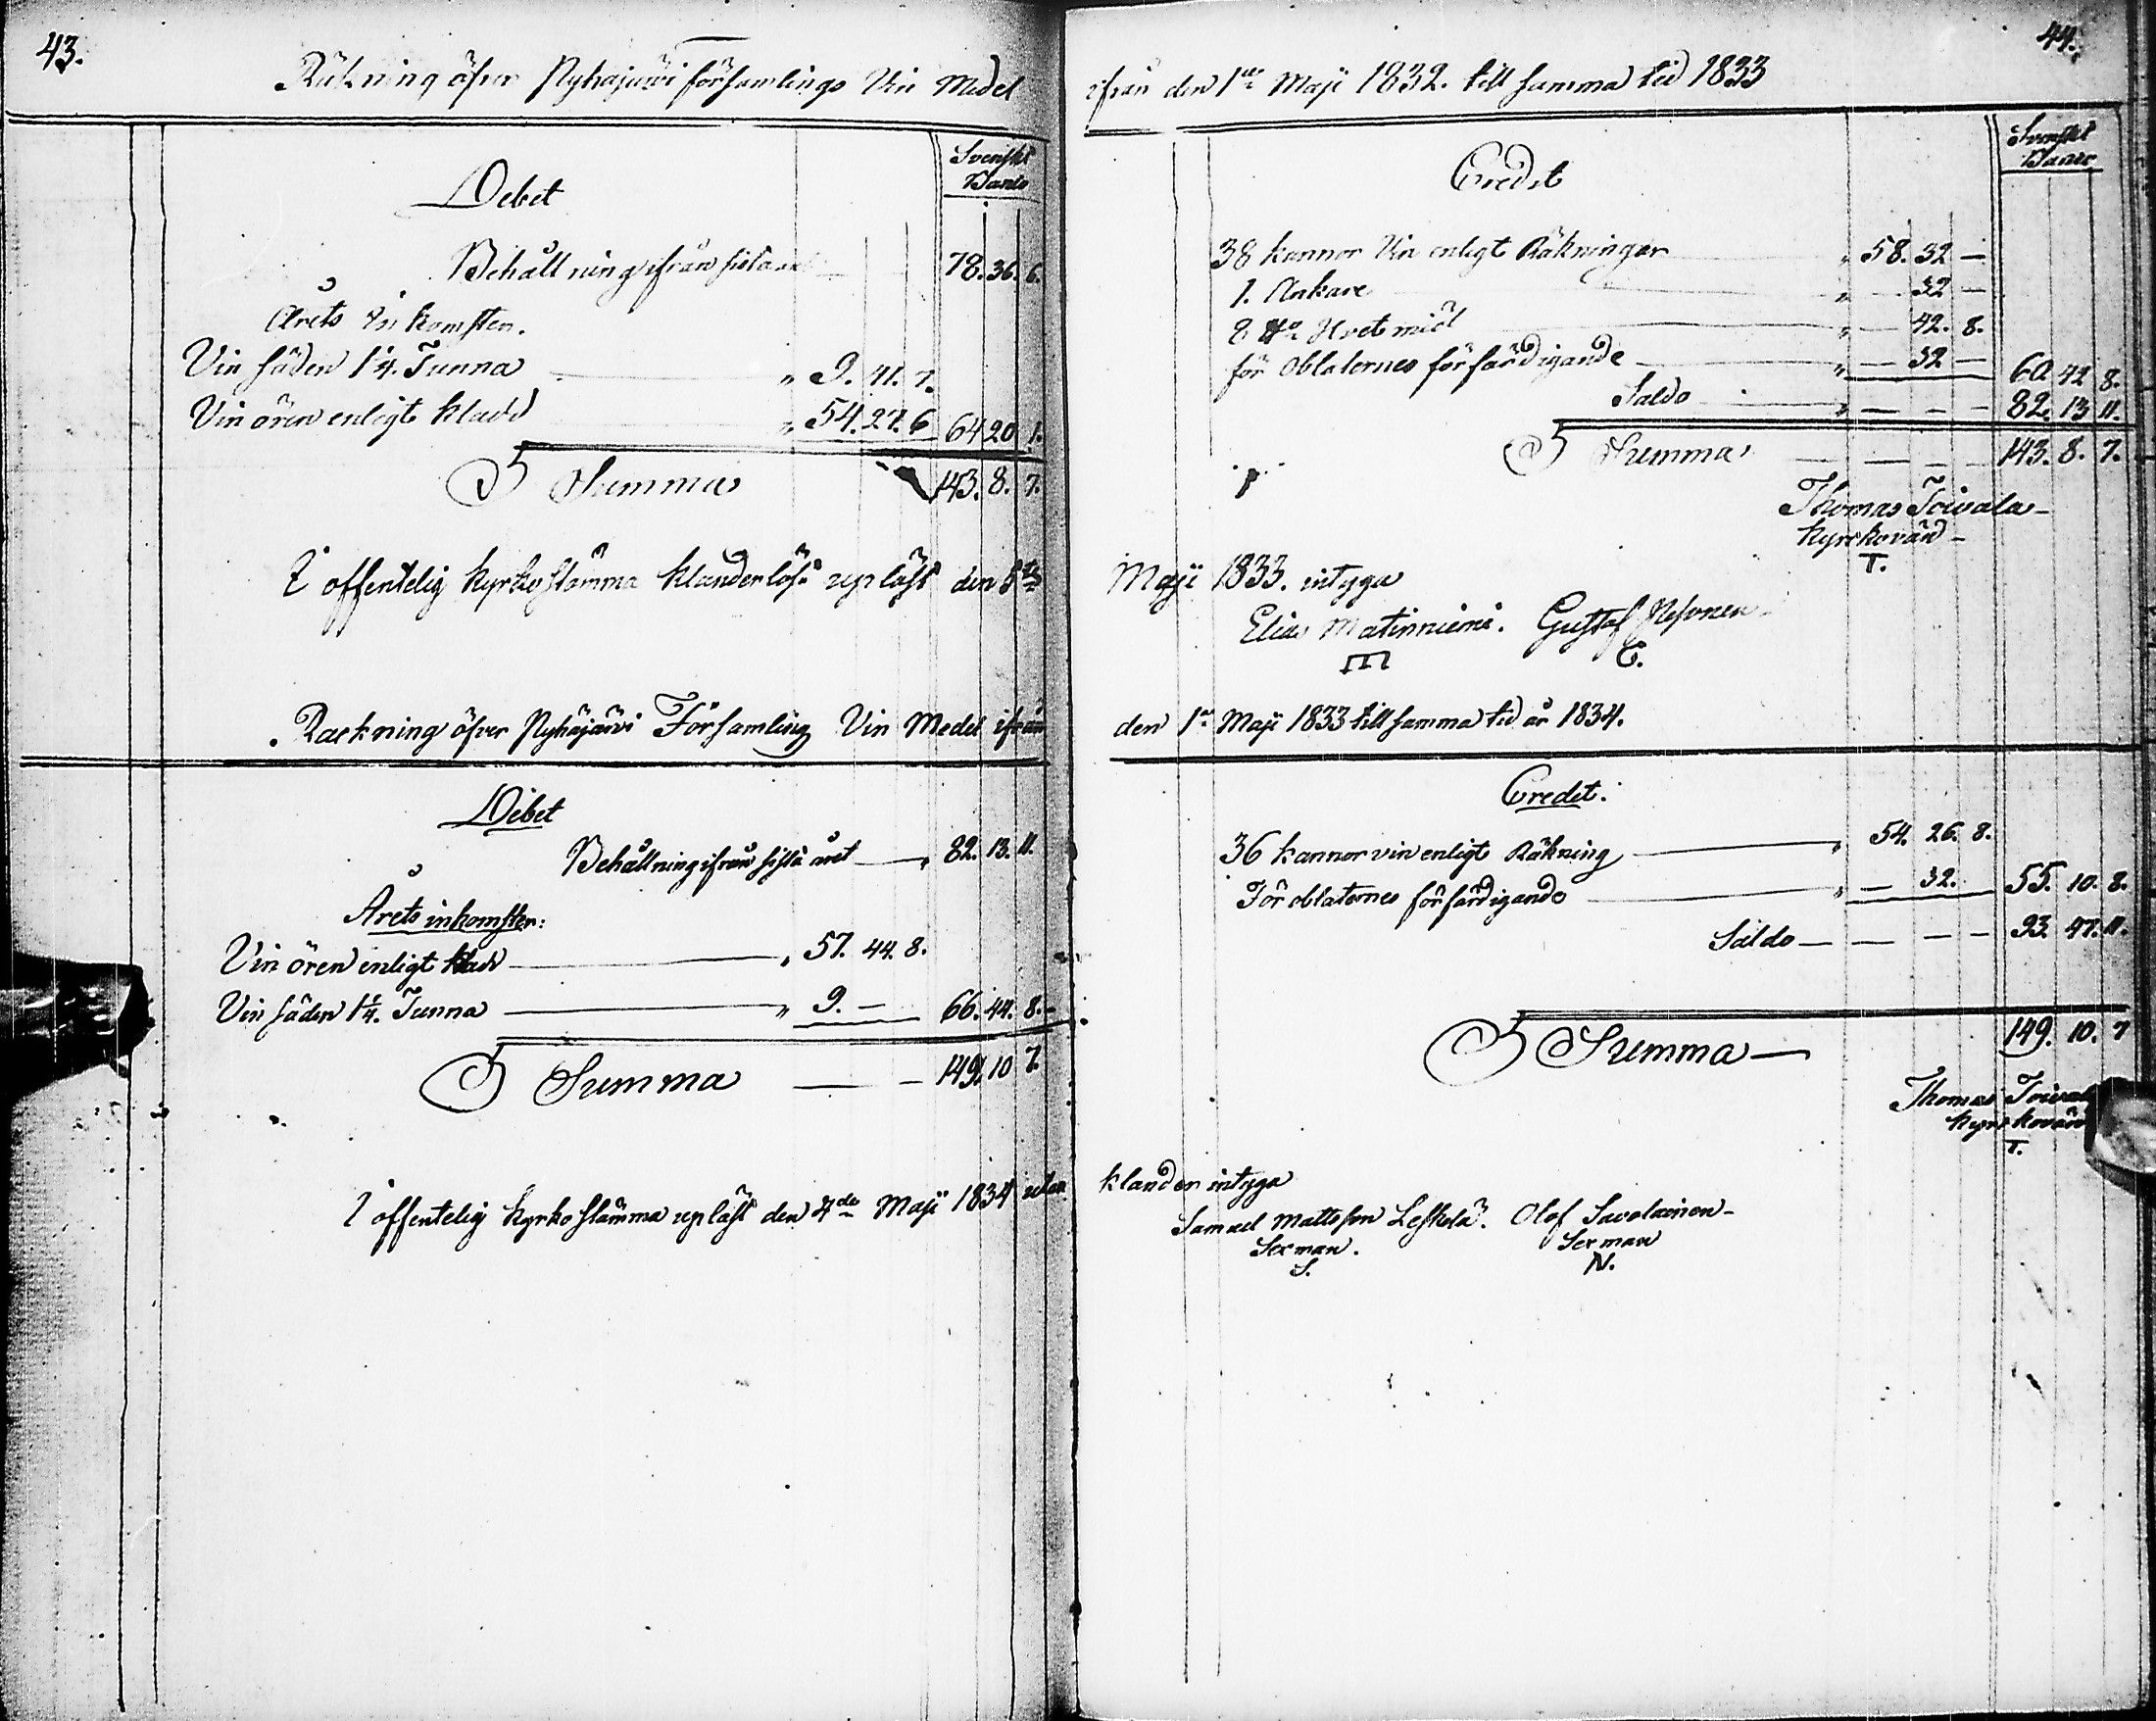 43.
Räkning öfver Pyhäjärvi församlings Vin Medel
Svenskt
Banco
Debet
Behållning ifrån sista året 78. 36. 6.
Årets Inkomsten.
Vin säden 1 1/4. Tunna " 9. 41. 7.
Vin ören enligt kladd " 54. 27. 6 64 20 1.
Summa 143. 8. 7.
I offentelig kyrkostämma klanderlöst upläst den 5te
Rackning öfver Pyhäjärvi Församling Vin Medel ifrån
Debet
Behållning ifrån sista året " 82. 13. 11.
Årets inkomster:
Vin ören enligt kladd " 57. 44. 8.
Vin säden 1 1/4. Tunna " 9. — 66. 44. 8.
Summa — — 149. 10 7.
I offentelig kyrkostämma upläst den 4de Maji 1834 utan
44.
ifrån den 1sta Maji 1832. till samma tid 1833
Svenskt
Banco
Credit
38 kannor Vin enligt Räkningar " 58. 32 —
1. Ankare " 32 —
8 ℔ Hvetmiöl " — 42. 8.
för Oblaternes förfärdigande " — 32 — 60. 42 8.
Saldo " — — — 82. 13 11.
Summa — — — 143. 8. 7.
Thomas Toivala
kyrckovärd
T.
Maji 1833. intyga
Elias Matinniemi. Gustaf
m C.
den 1a Maji 1833 till samma tid år 1834.
Credit.
36 kannor vin enligt Räkning " 54. 26. 8.
För oblaternes förfärdigande " — 32. 55. 10. 8.
Saldo — — — — 93. 47. 11.
Summa — 149. 10. 7
Thomas Toivala
kyrckovärd
T.
klander intyga
Samuel Mattsson Leskelä. Olof Savolainen
Sexman. Sexman
S. N.